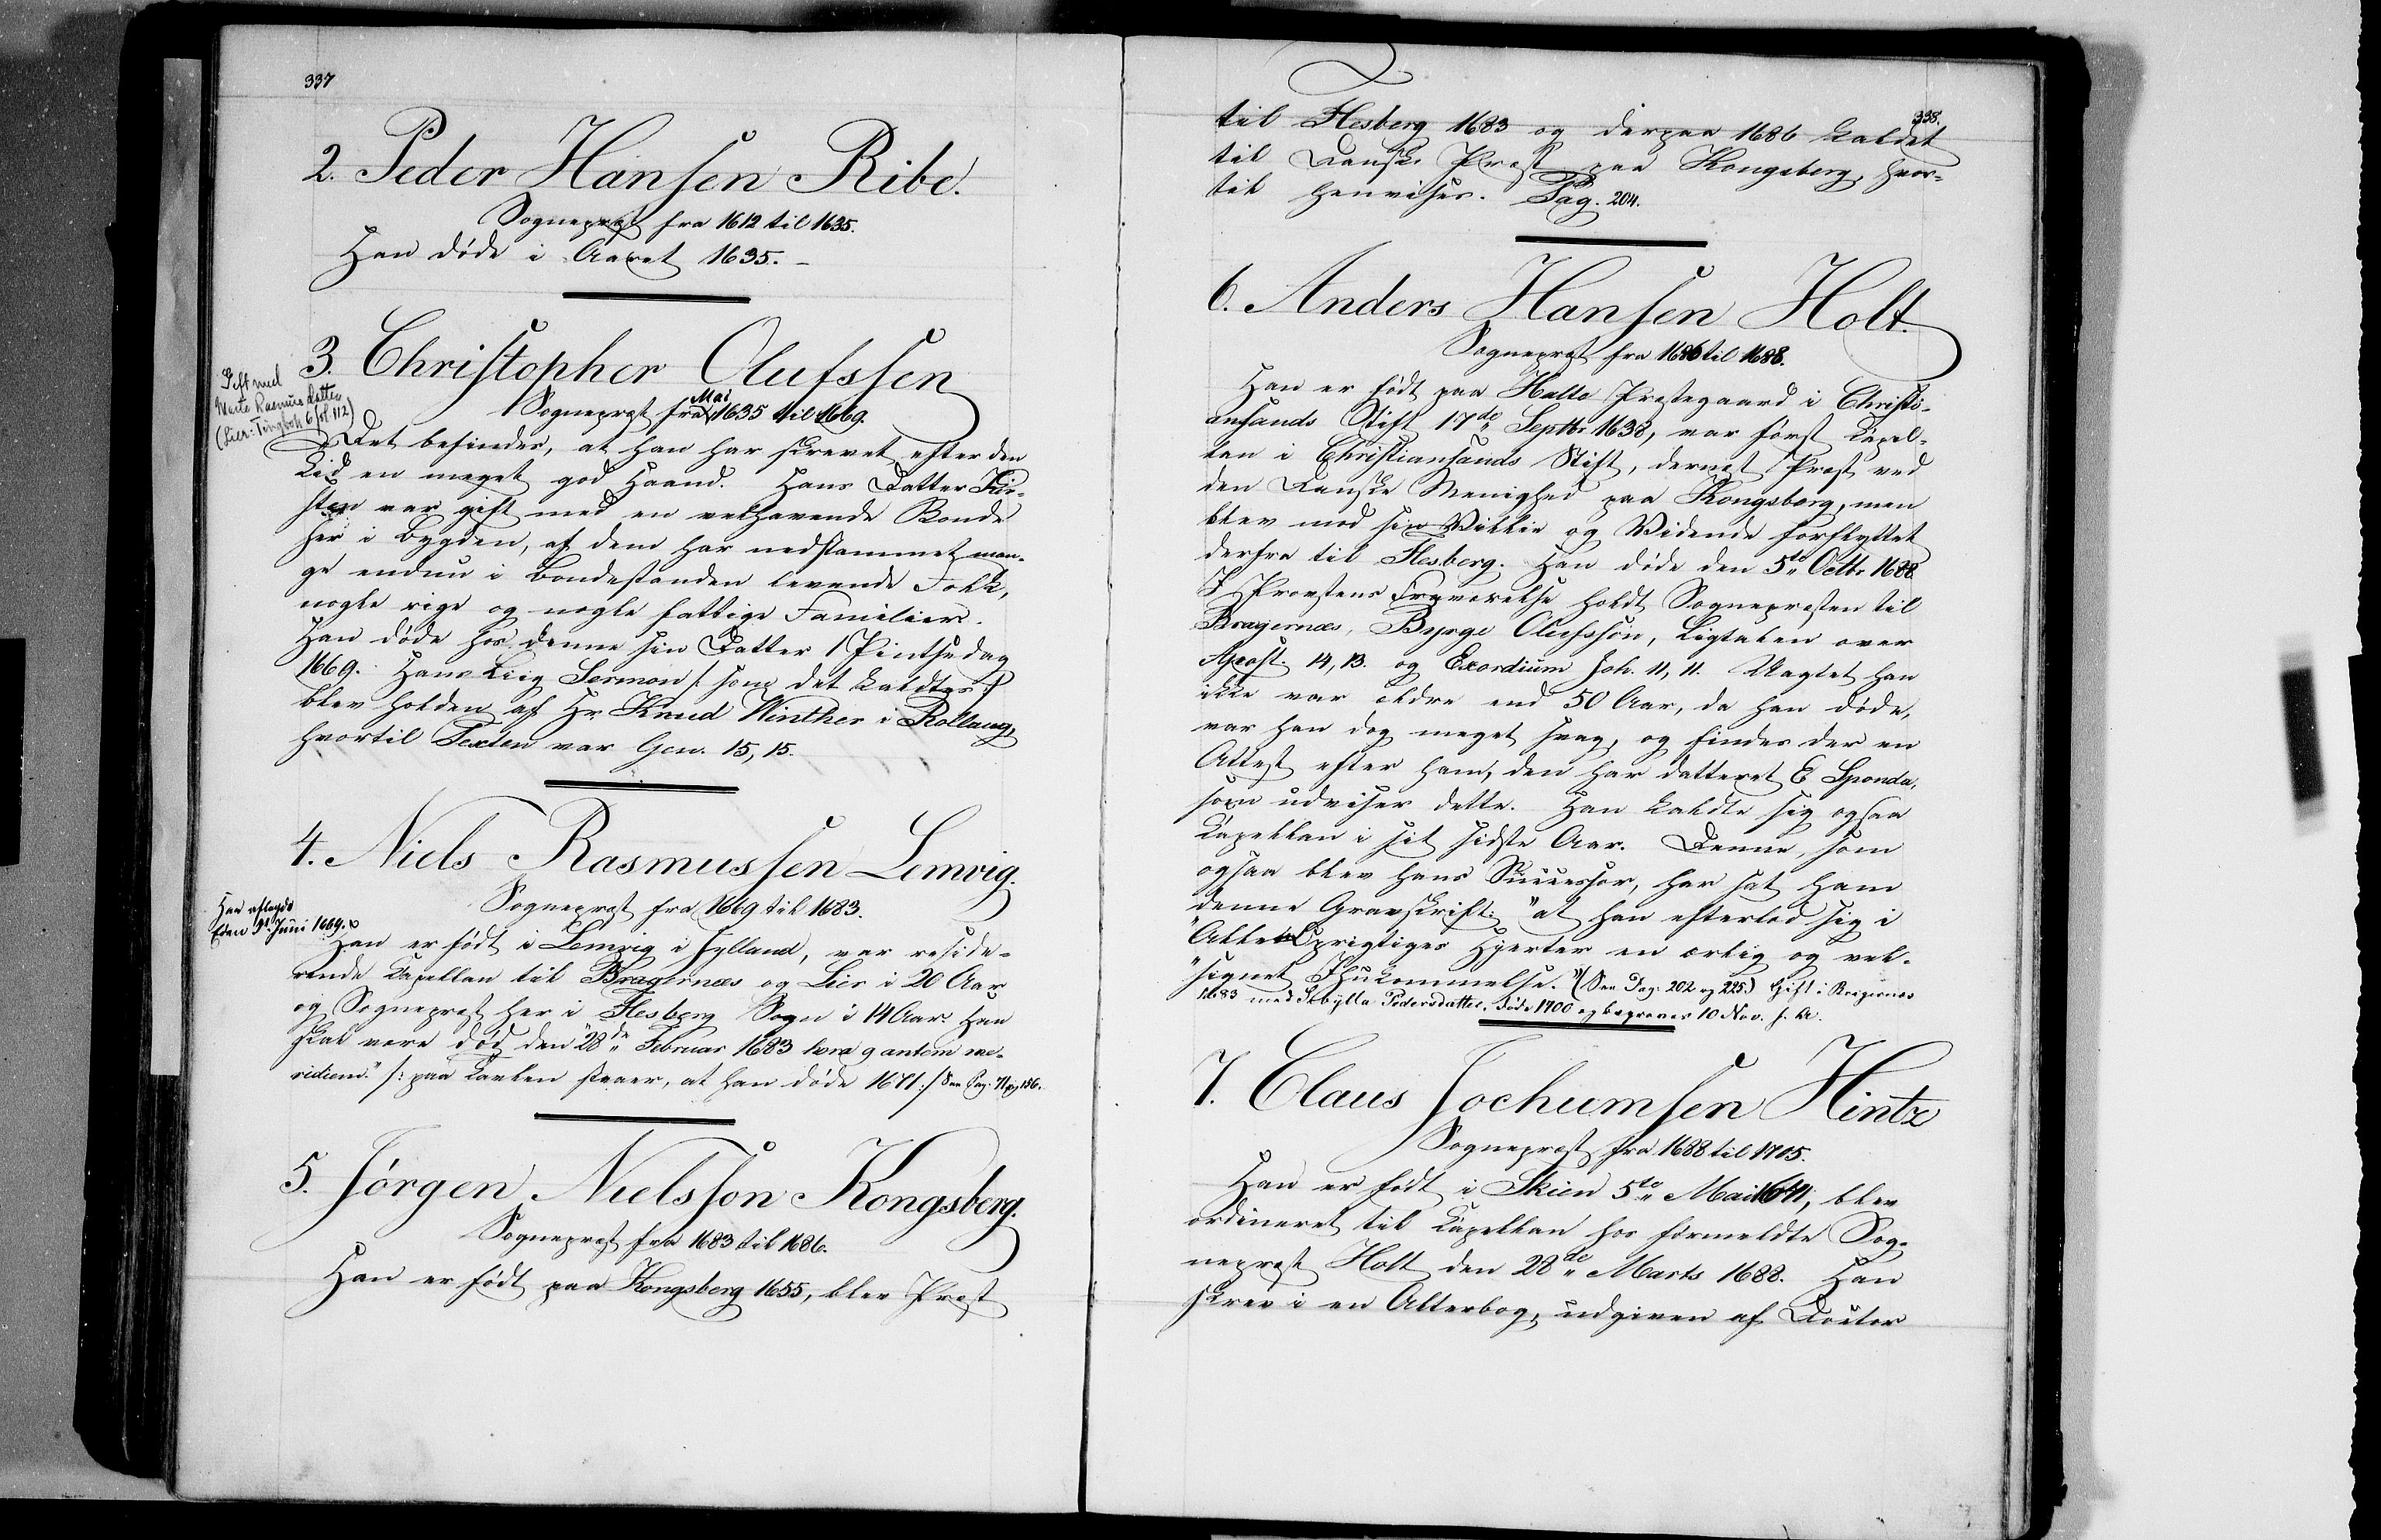 337
2. Peder Hansen Ribe.
Sognepræst fra 1612 til 1635.
Han døde i Aaret 1635. –
3. Christopher Olufssen
Gift med
Marte Rasmusdatter
(Lier: Tingbok 6 fol. 112)
Mai
Sognepræst fra 1635 til 1669.
Det befindes, at han har skrevet efter den
Tid en meget god Haand. Hans Datter Kir-
sten var gift med en velhavende Bonde
her i Bygden, af dem har nedstammet man-
ge endnu i Bondestanden levende Folk,
nogle rige og nogle fattige Familier.
Han døde hos denne sin Datter 1 Pintsedag
1669. Hans Liig Sermon /: som det kaldtes :/
blev holden af Hr. Knud Winther i Rollaug,
hvortil Texten var Gen. 15, 15.
4. Niels Rasmussen Lemvig.
Sognepræst fra 1669 til 1683.
Han aflagde
Eden 9de Juni 1669.
Han er født i Lemvig i Jylland, var reside-
rende Kapellan til Bragernæs og Lier i 20 Aar
og Sognepræst her i Flesberg Sogn i 14 Aar. Han
skal være død den "28de Februar 1683 hora 9 antem me-
ridiem." /: paa Tavlen staaer, at han døde 1671 :/ See Pag. 71 og 156.
5. Jørgen Nielssøn Kongsberg.
Sognepræst fra 1683 til 1686.
Han er født paa Kongsberg 1655, blev Præst
338.
til Flesberg 1683 og derpaa 1686 kaldet
til Dansk Præst paa Kongsberg, hvor-
til henvises. Pag. 204.
6. Anders Hansen Holt.
Sognepræst fra 1686 til 1688.
Han er født paa Halto Præstegaard i Christi-
ansands Stift 17de Septbr 1638, var først Kapel-
lan i Christiansands Stift, dernæst Præst ved
den Danske Menighed paa Kongsberg, men
blev mod sin Villie og Vidende forflyttet
derfra til Flesberg. Han døde den 5te Octbr 1688.
I Provstens Fraværelse holdt Sognepræsten til
Bragernæs, Byrge Olufssøn, Ligtalen over
Apost. 14, 13. og Exordium Joh. 11, 11. Uagtet han
ikke var ældre end 50 Aar, da han døde,
var han dog meget svag, og findes der en
Attest efter ham, den har datteret E Sponda,
som udviser dette. Han kaldte sig ogsaa
Kapellan i sit sidste Aar. Denne, som
ogsaa blev hans Successor, har sat ham
denne Gravskrift: "at han efterlod sig i
"Alle Oprigtiges Hjerter en ærlig og vel-
"signet Ihukommelse." (See Pag. 202 og 225.) Gift i Bragernæs
1683 med Sebylla Pedersdatter, døde 1700 og begraves 10 Nov. s. A.
7. Claus Jochumsen Hintz
Sognepræst fra 1688 til 1705.
Han er født i Skien 5te Mai 1641, blev
ordineret til Kapellan hos formeldte Sog-
nepræst Holt den 28de Marts 1688. Han
skrev i en Alterbog, udgiven af Doctor